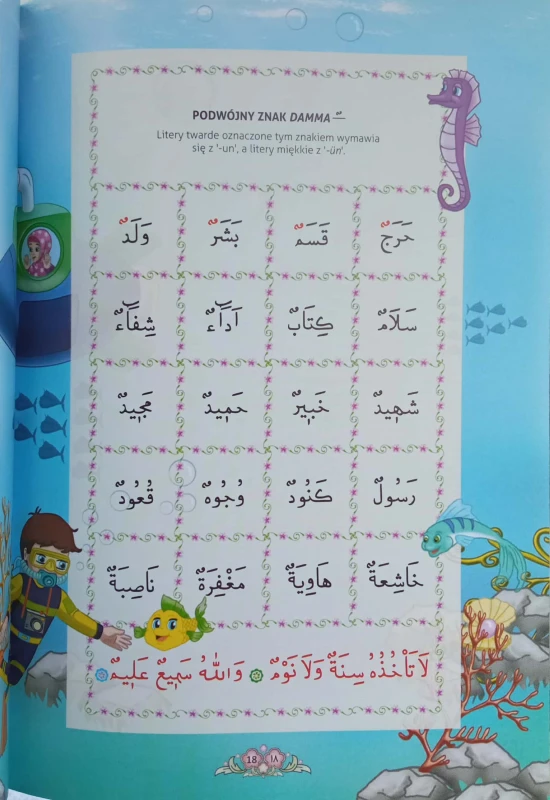 PODWÓJNY ZNAK DAMMA ـٌ
Litery twarde oznaczone tym znakiem wymawia
się z '-un', a litery miękkie z '-ün'.
حَرَجٌ قَسَمٌ بَشَرٌ وَلَدٌ
سَلَامٌ كِتَابٌ اَدَٓاءٌ شِفَٓاءٌ
شَهِيدٌ خَبِيرٌ حَمِيدٌ مَجِيدٌ
رَسُولٌ كَنُودٌ وُجُوهٌ قُعُودٌ
خَاشِعَةٌ هَاوِيَةٌ مَغْفِرَةٌ نَاصِبَةٌ
لَا تَأْخُذُهُ سِنَةٌ وَلَا نَوْمٌ وَاللّٰهُ سَمِيعٌ عَلِيمٌ
18 ١٨